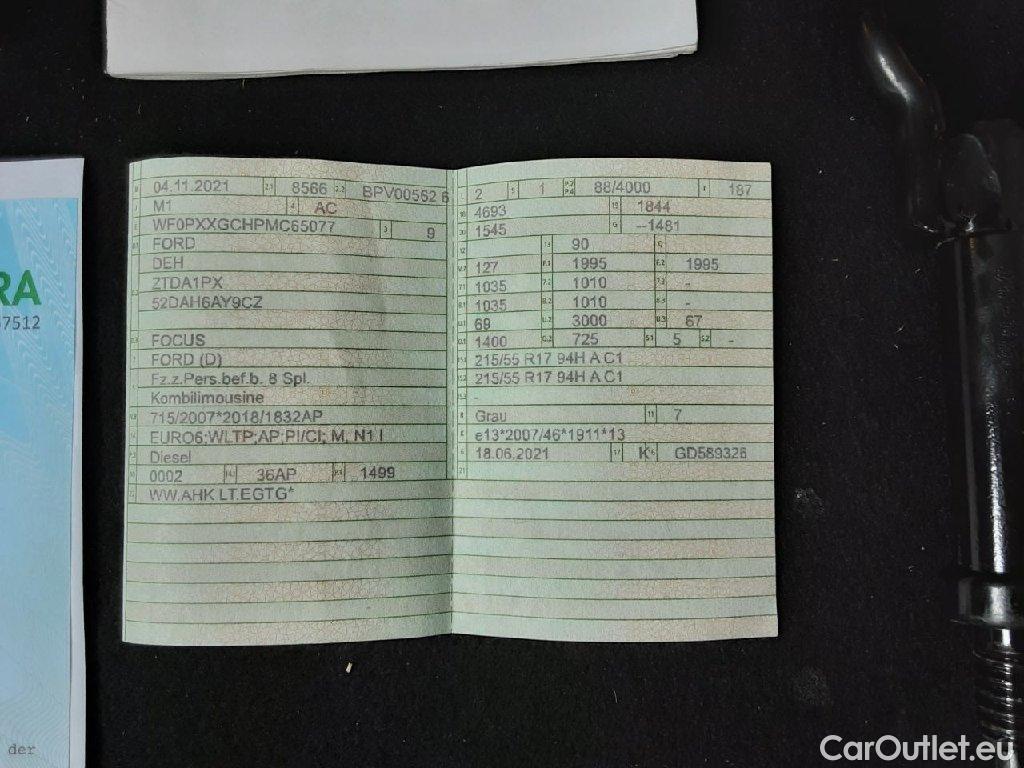 RA
7512
der
04.11.2021 8566 BPV00552 6
M1 AC
WF0PXXGCHPMC65077 9
FORD
DEH
ZTDA1PX
52DAH6AY9CZ
FOCUS
FORD (D)
Fz.z.Pers.bef.b. 8 Spl.
Kombilimousine
715/2007*2018/1832AP
EURO6;WLTP;AP;PI/CI; M, N1 I
Diesel
0002 36AP 1499
WW.AHK LT.EGTG*
2 1 88/4000 187
4693 1844
1545 --1481
90
127 1995 1995
1035 1010 -
1035 1010 -
69 3000 67
1400 725 5 -
215/55 R17 94H A C1
215/55 R17 94H A C1
-
Grau 7
e13*2007/46*1911*13
18.06.2021 K GD589326
CarOutlet.eu